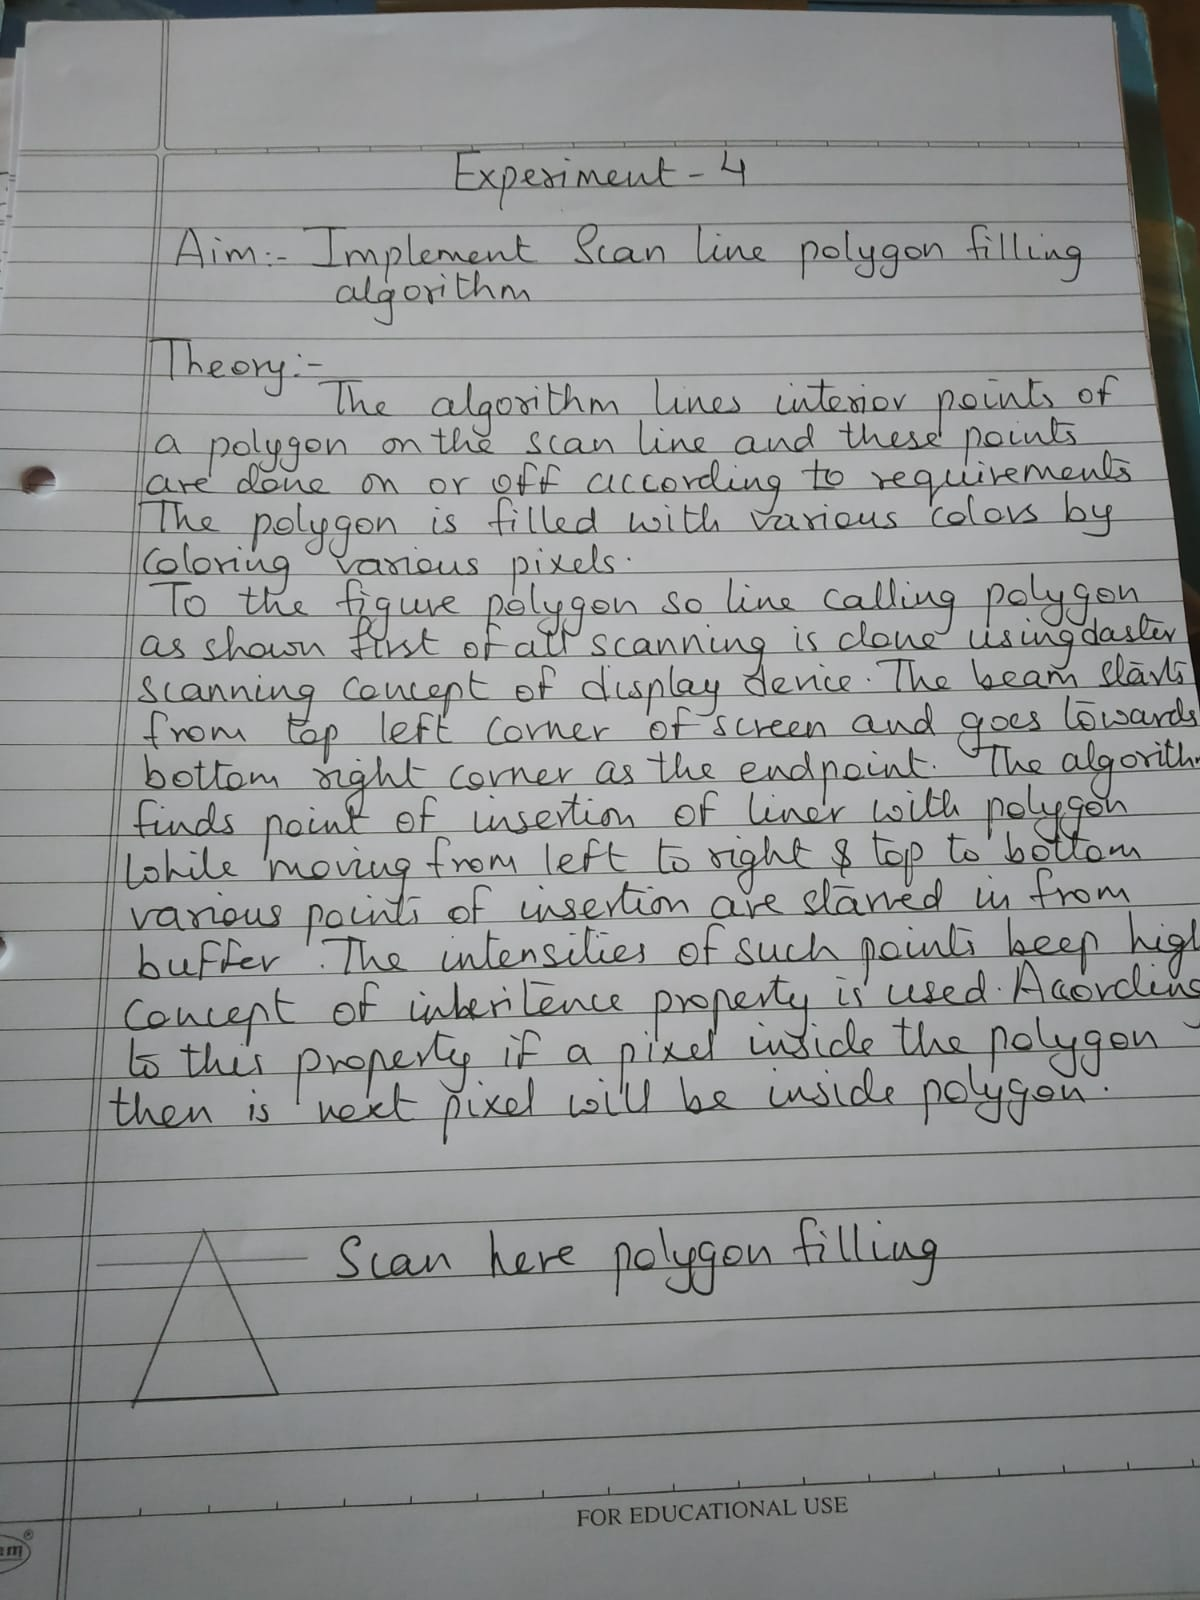 Experiment - 4
Aim:- Implement Scan line polygon filling
algorithm
Theory:-
The algorithm lines interior points of
a polygon on the scan line and these points
are done on or off according to requirements
The polygon is filled with various colors by
coloring various pixels.
To the figure polygon so line calling polygon
as shown first of all scanning is done using daster
scanning concept of display device. The beam starts
from top left corner of screen and goes towards
bottom right corner as the endpoint. The algorith
finds point of insertion of liner with polygon
while moving from left to right & top to bottom
various points of insertion are starred in from
buffer. The intensities of such points beep high
concept of inheritence property is used. Acording
to this property if a pixel inside the polygon
then is next pixel will be inside polygon.
Scan here polygon filling
FOR EDUCATIONAL USE